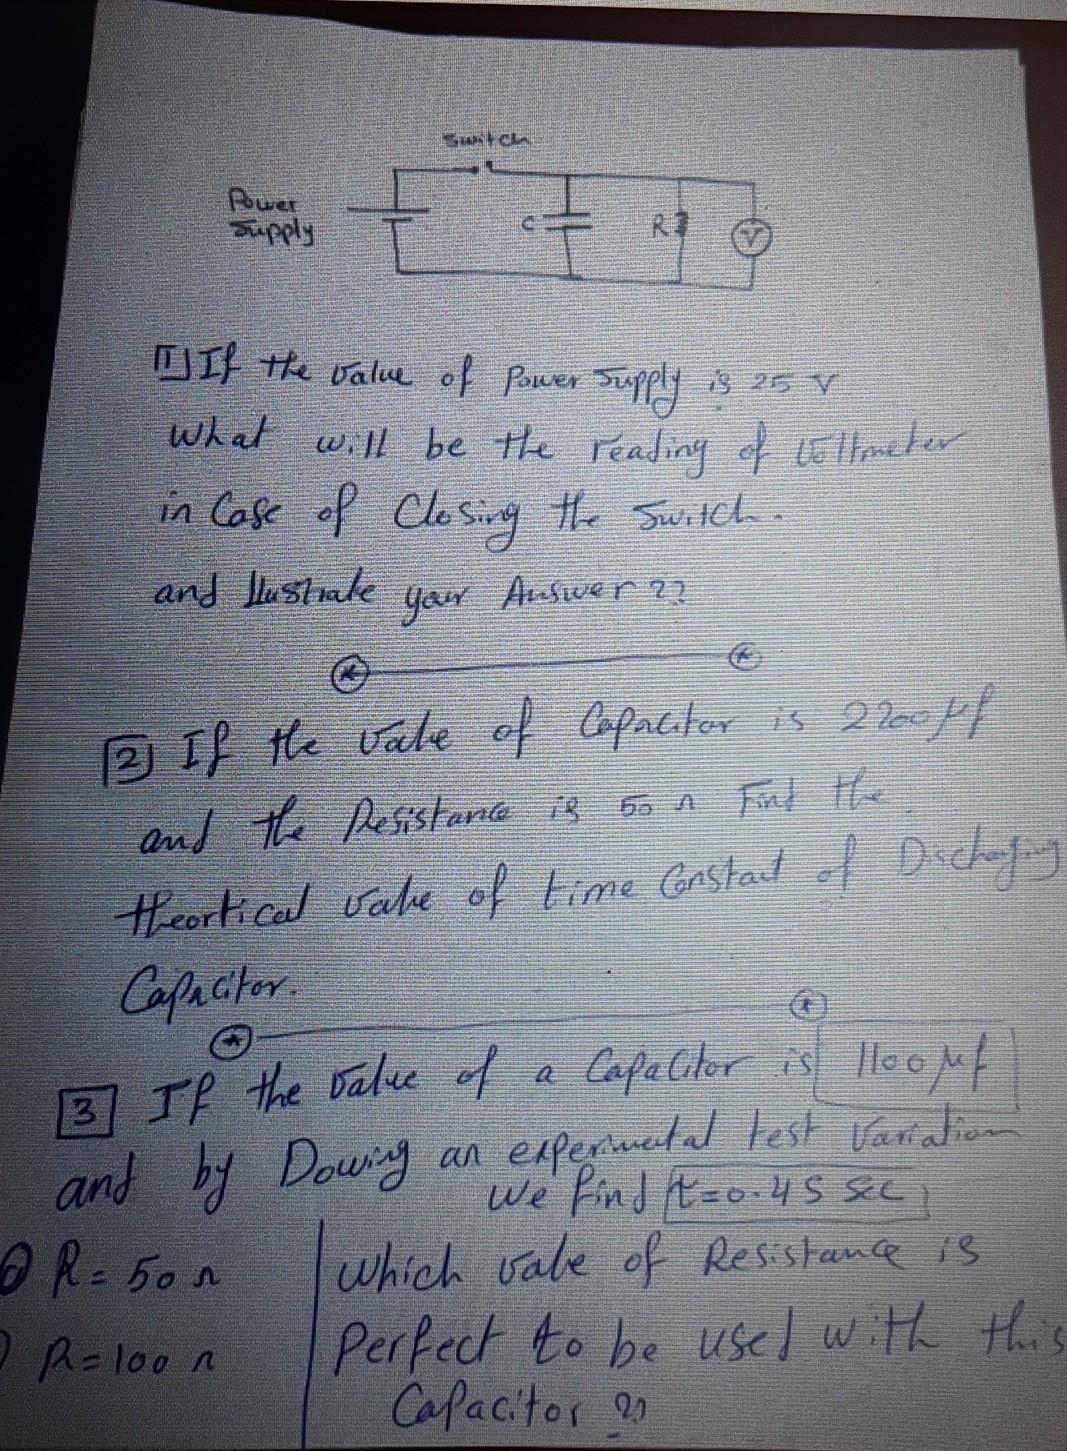 Switch
Power
Supply
C
R
V
1 If the value of Power Supply is 25 V
What will be the reading of voltmeter
in Case of Closing the Switch.
and Ilustrate your Answer ??
2 If the value of Capacitor is 2200 μf
and the Resistance is 50 Ω Find the
theortical value of time Constant of Discharging
Capacitor.
3 If the value of a Capacitor is 1100 μf
and by Dowing an experimental test variation
we find t=0.45 sec
R = 50 Ω
Which vale of Resistance is
R = 100 Ω
Perfect to be used with this
Capacitor ??